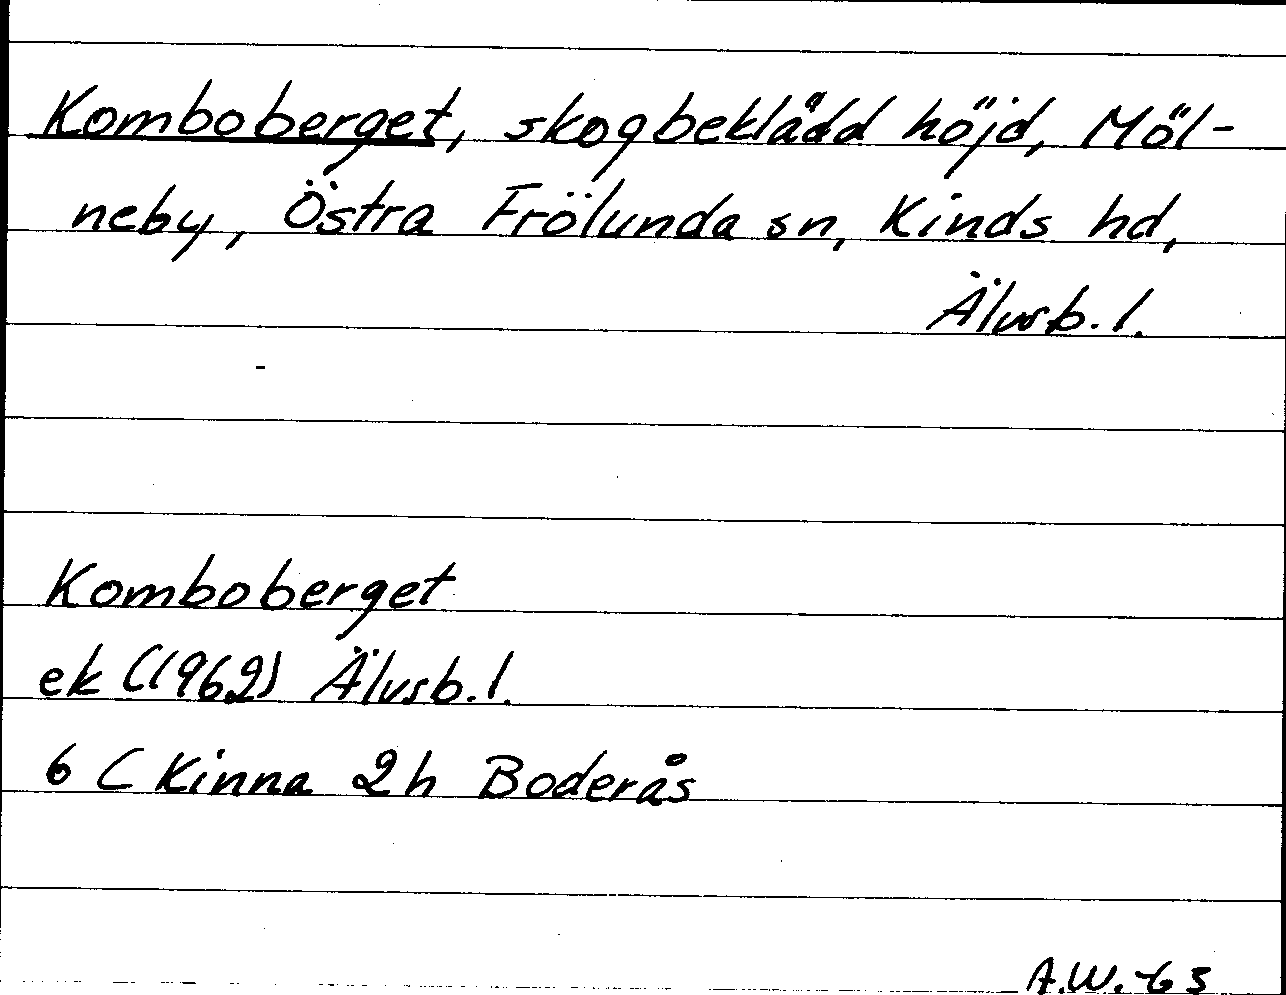 Komboberget, skogbeklädd höjd, Möl-
neby, Östra Frölunda sn, Kinds hd,
Älvsb. l.
Komboberget
ek (1962) Älvsb. l.
6 C Kinna 2h Boderås
A.W. -65